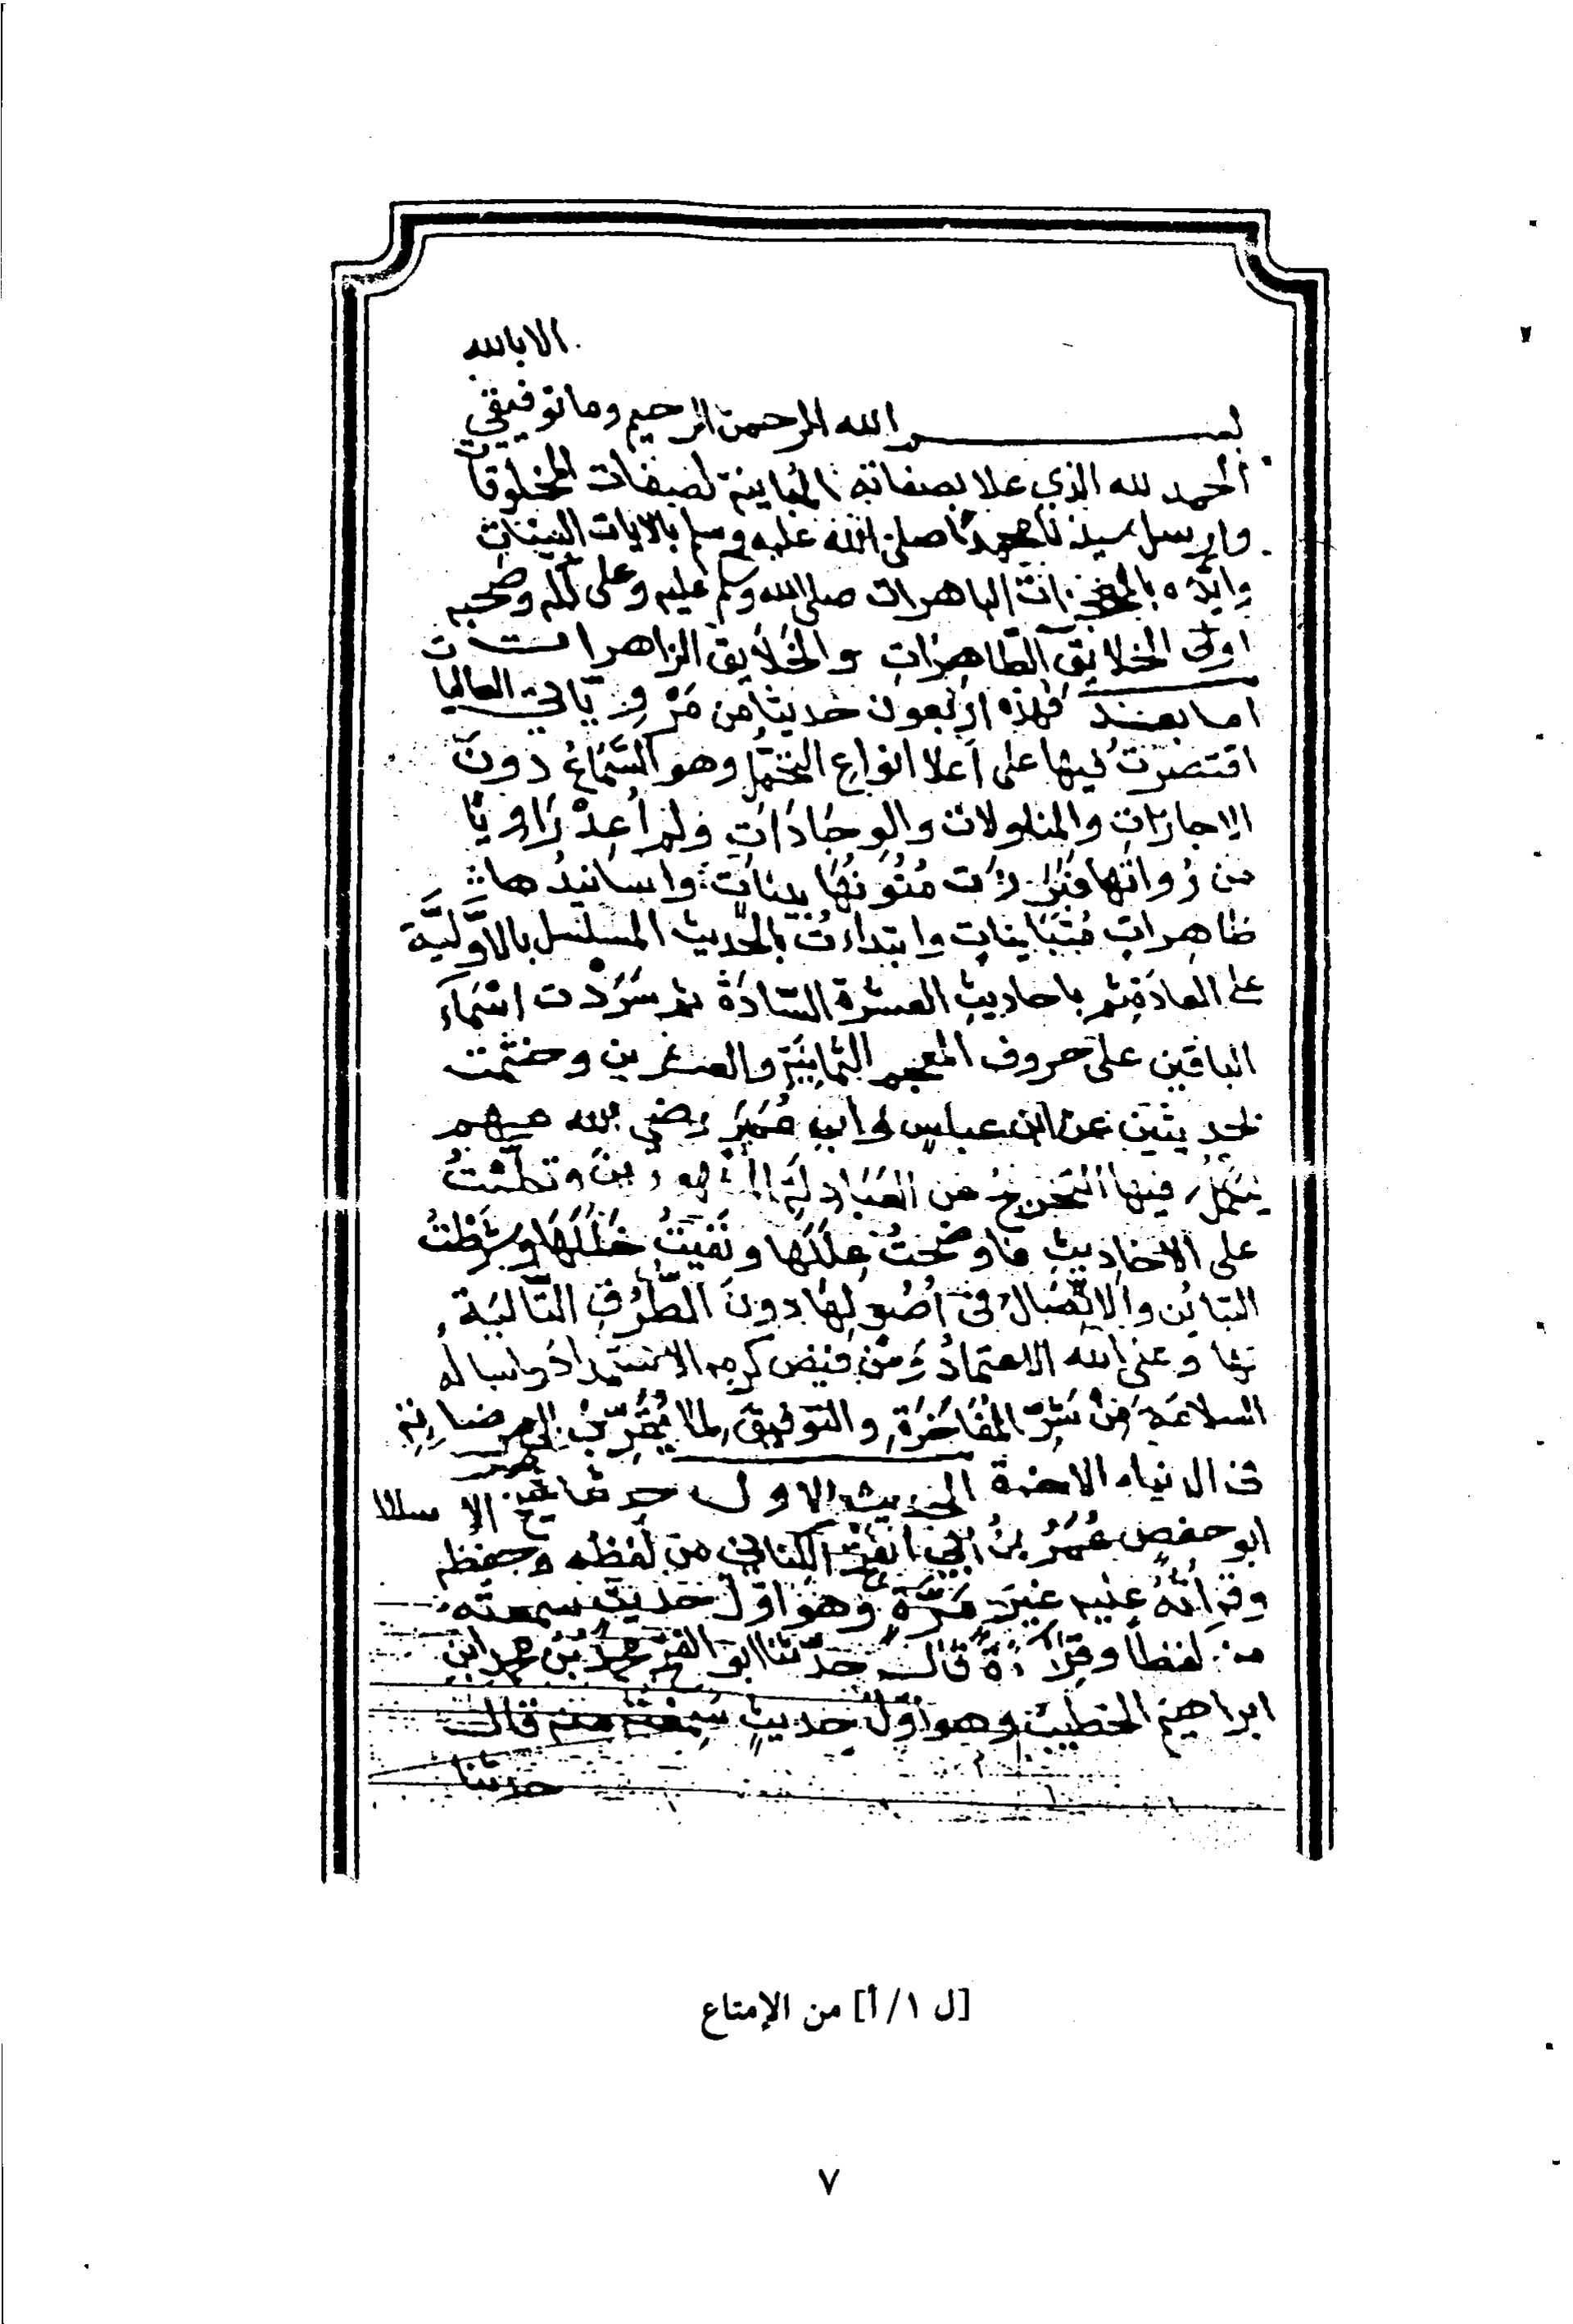 الا بالله
بسم الله الرحمن الرحيم وما توفيقي
الحمد لله الذي علا بصفاته المباينة لصفات المخلوقات
وارسل سيدنا محمدا صلى الله عليه وسلم بالايات البينات
وايده بالمعجزات الباهرات صلى الله وسلم عليه وعلى آله وصحبه
اولى الخلائق الطاهرات والخلايق الزاهرات
اما بعد فهذه اربعون حديثا من مروياتي العاليا
اقتصرت فيها على اعلا انواع التحمل وهو السماع دون
الاجازات والمناولات والوجادات ولم اعد راويا
من رواتها فبرزت متونها بينات واسانيدها
ظاهرات متباينات وابتدات بالحديث المسلسل بالاولية
على العادة ثم باحاديث العشرة السادة ثم سردت اسماء
الباقين على حروف المعجم الثمانية والعشرين وختمت
بحديثين عن ابن عباس وابن عمر رضي الله عنهم
يتكمل فيها التخريج من العبادلة المشهورين وتكلمت
على الاحاديث فاوضحت عللها ونفيت خللها وشرطت
التباين والاتصال في اصولها دون الطرق التالية
لها وعلى الله الاعتماد ومن فيض كرمه الاستمداد واساله
السلامة من شر المفاخرة والتوفيق لما يقرب الى مرضاته
في الدنيا والاخرة الحديث الاول حدثنا شيخ الاسلام
ابو حفص عمر بن ابي الفتح الكناني من لفظه وحفظه
وقراته عليه غير مرة وهو اول حديث سمعته
منه لفظا وقراءة قال حدثنا ابو الفتح محمد بن محمد ابن
ابراهيم الخطيب وهو اول حديث سمعته منه قال
حدثنا
[ل ١/أ] من الإمتاع
٧